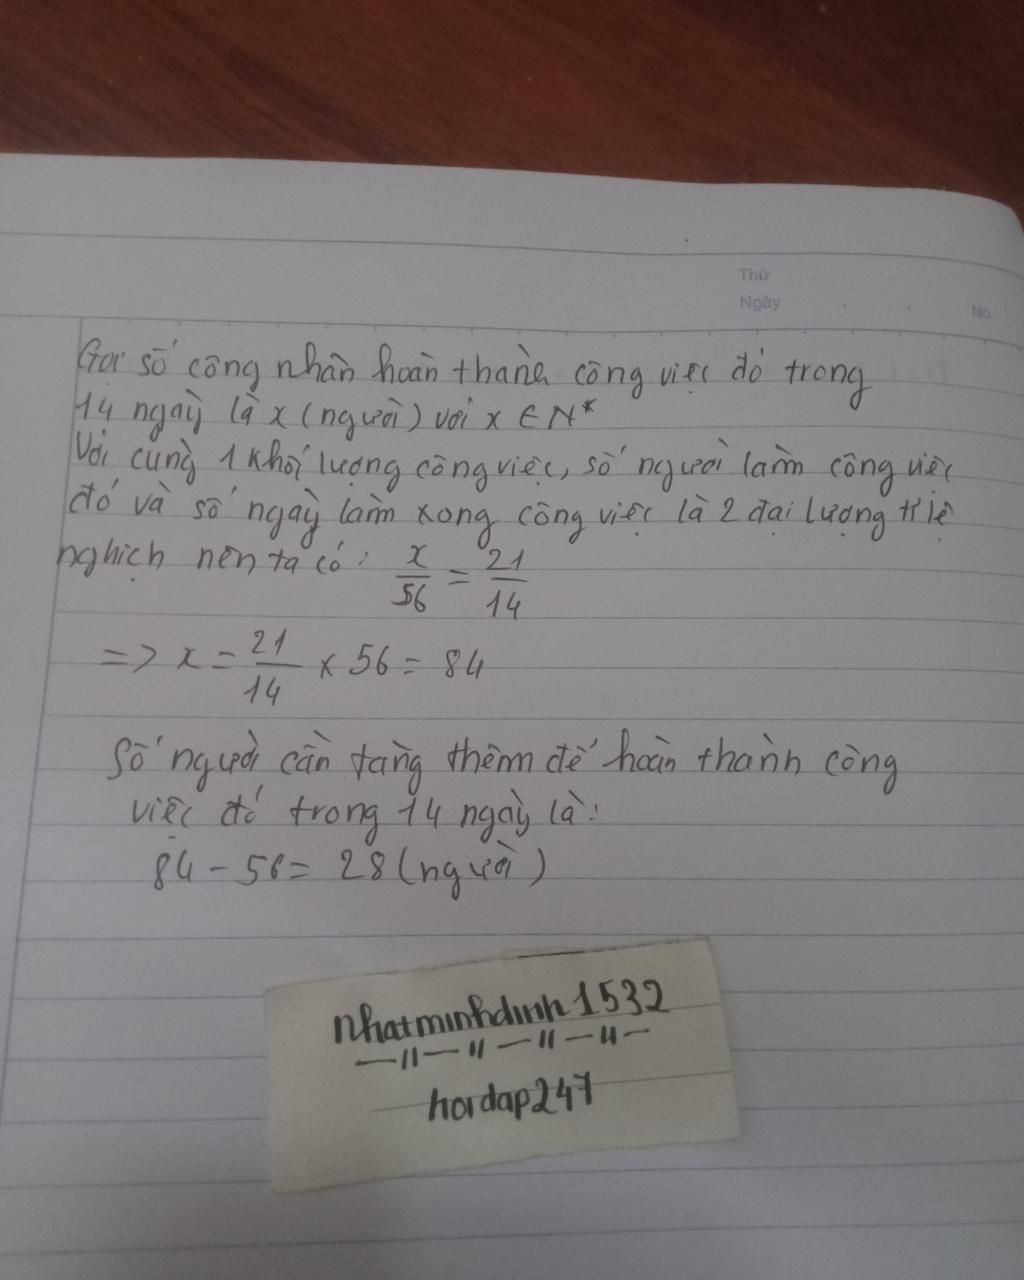 Thứ
Ngày
No.
Gọi số công nhân hoàn thành công việc đó trong
14 ngày là x (người) với x ∈ N*
Với cùng 1 khối lượng công việc, số người làm công việc
đó và số ngày làm xong công việc là 2 đại lượng tỉ lệ
nghịch nên ta có: x/56 = 21/14
=> x = 21/14 x 56 = 84
Số người cần tăng thêm để hoàn thành công
việc đó trong 14 ngày là:
84 - 56 = 28 (người)
nhatminhdinh1532
hoidap247